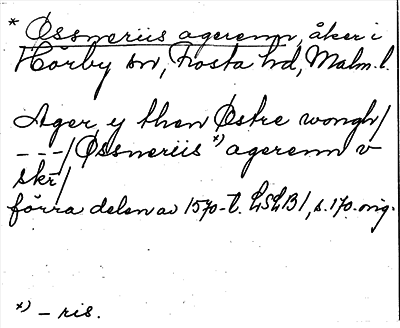 * Øssneriis agerenn, åker i
Hörby sn, Frosta hd, Malm. l.
Ager y then Østre wongh/
---/Øssneriis *) agerenn v
skr/
förra delen av 1570-t. LSLB1, s. 170. orig.
*) – ris.